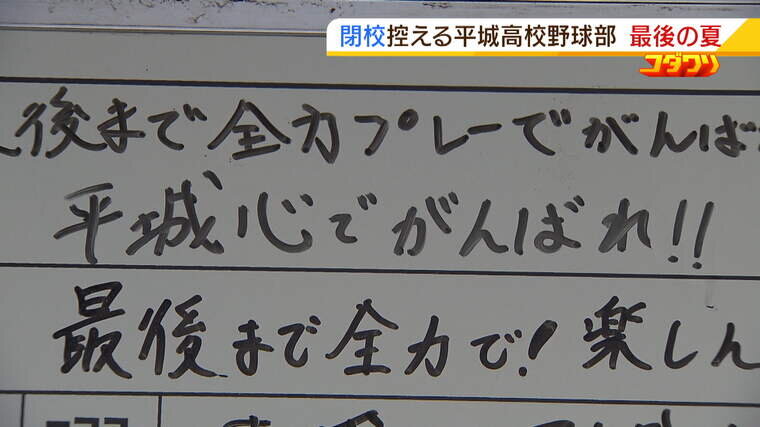 閉校控える平城高校野球部 最後の夏
コダワリ
後まで全力プレーでがんば
平城心でがんばれ!!
最後まで全力で!楽しん